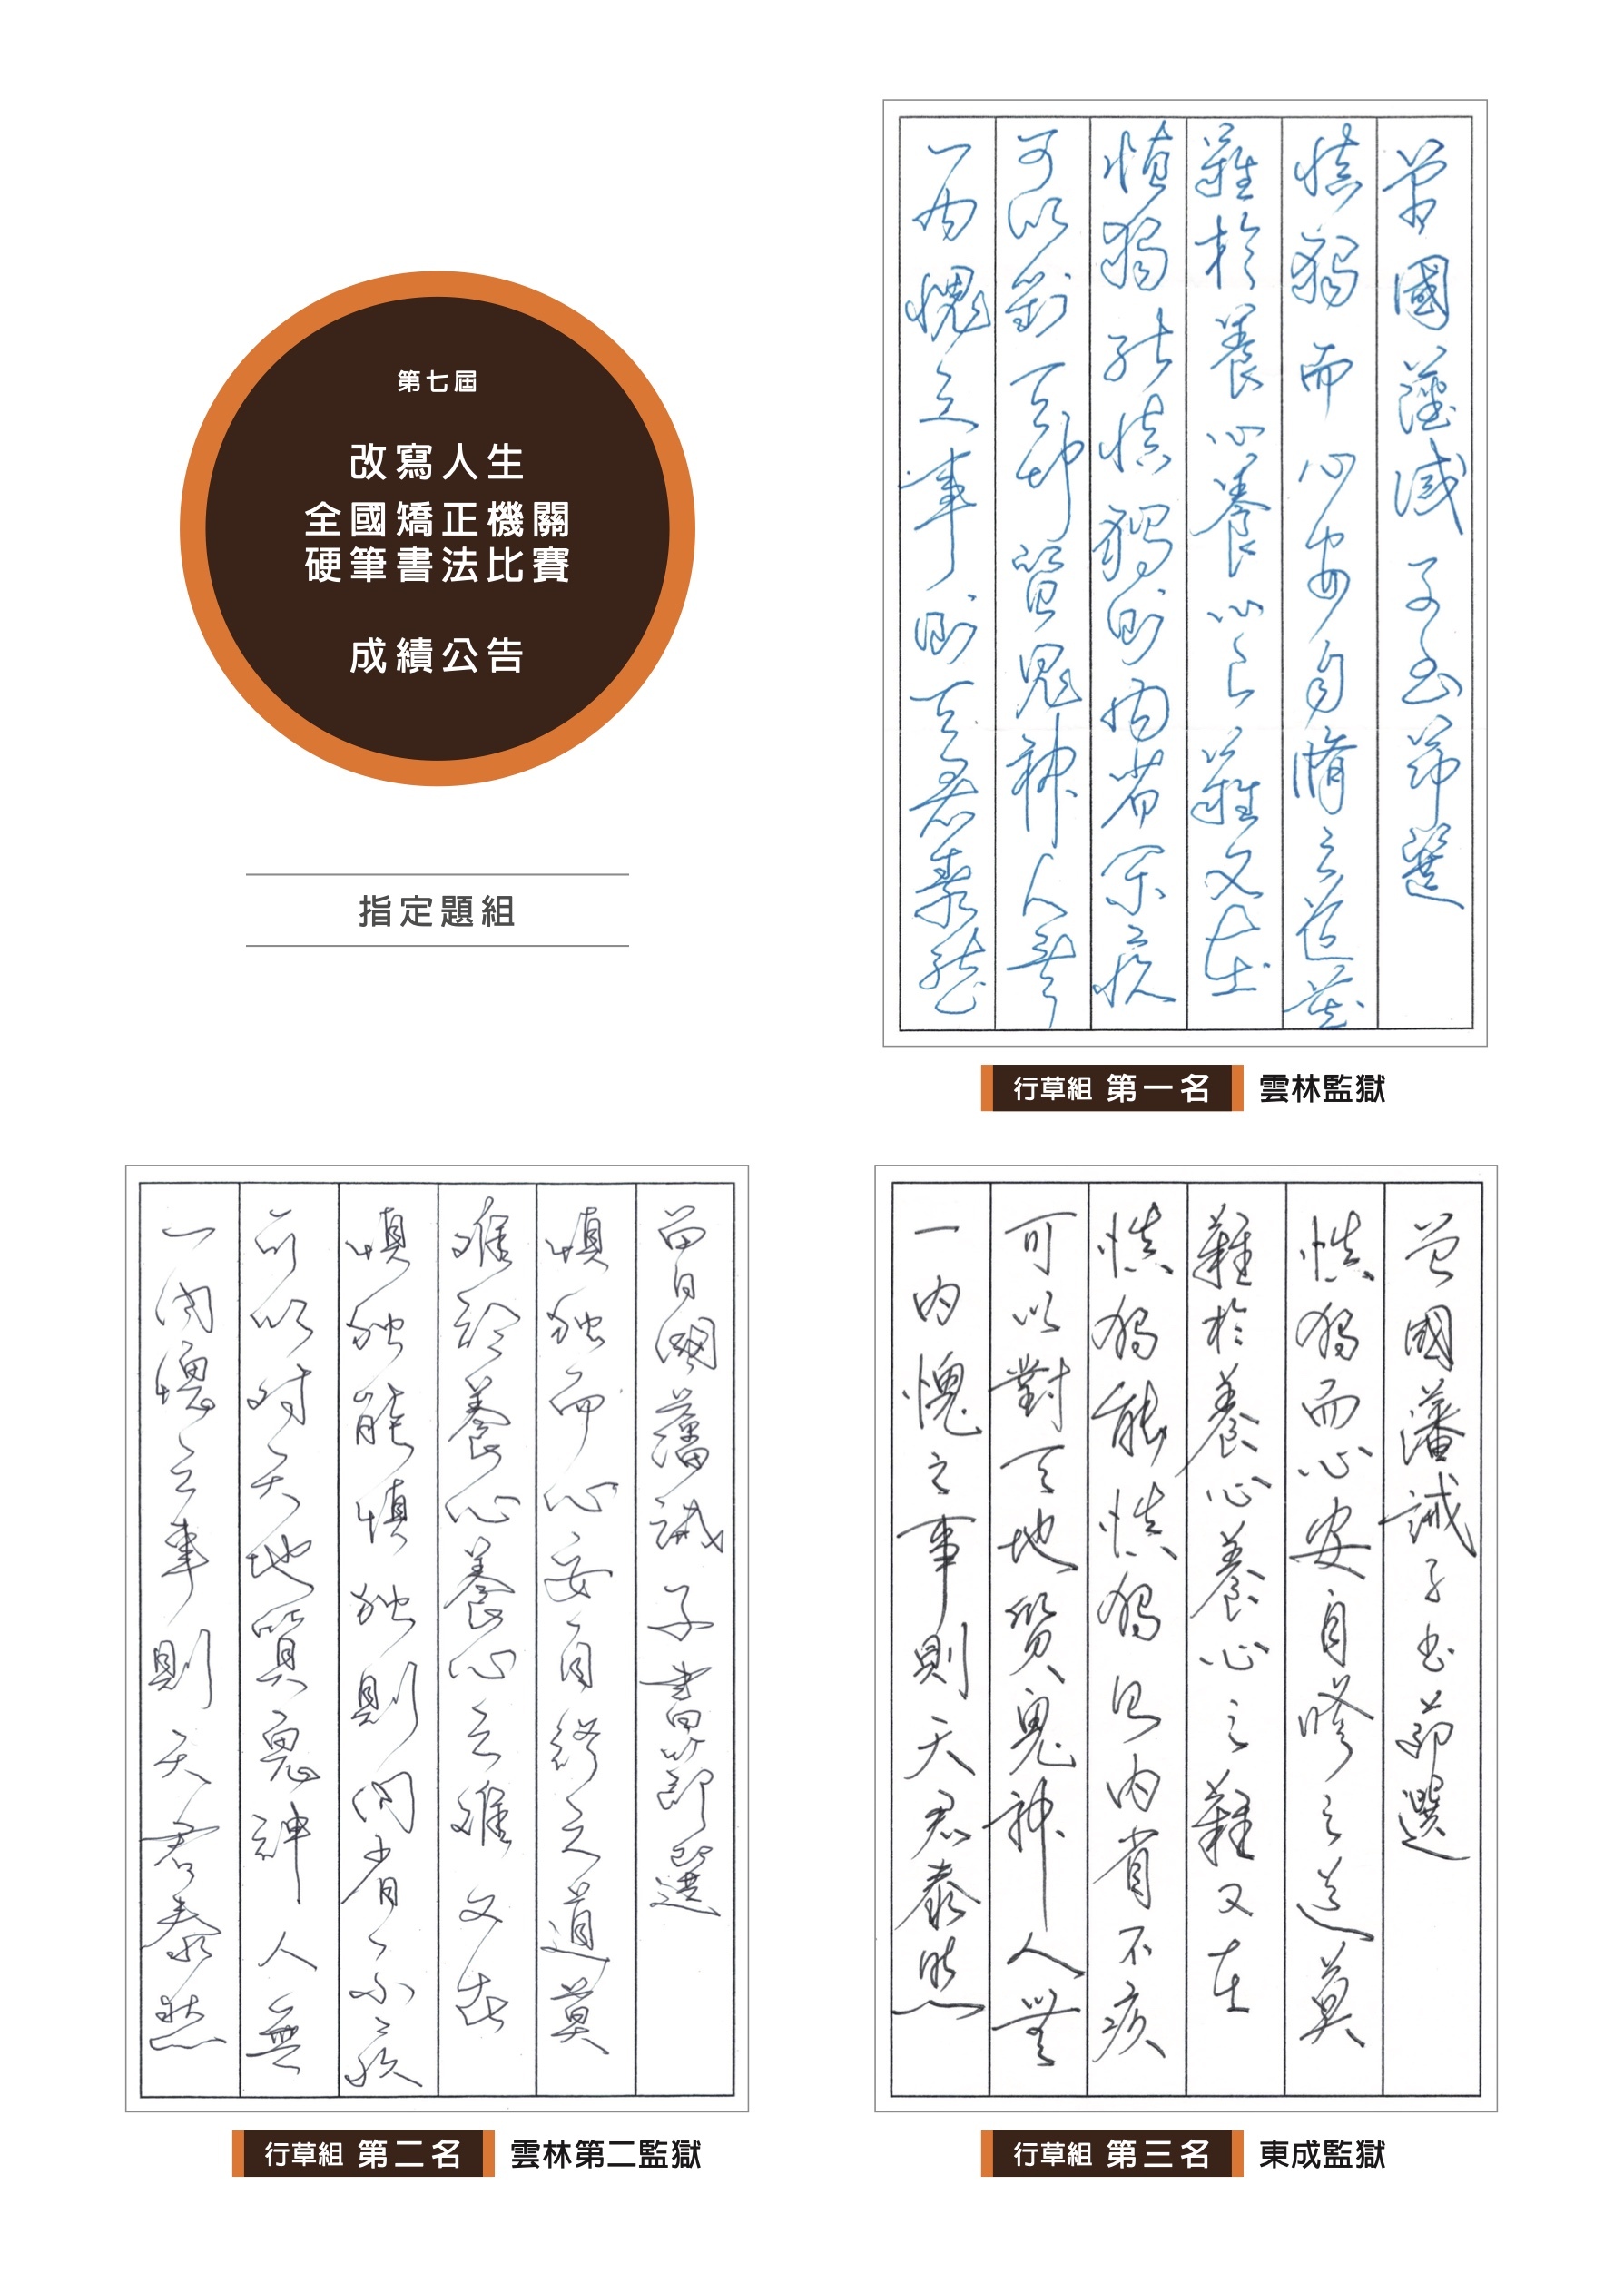 第七屆
改寫人生
全國矯正機關
硬筆書法比賽
成績公告
指定題組
曾國藩誡子書節選
慎獨而心安自修之道莫
難於養心養心之難又在
慎獨能慎獨則內省不疚
可以對天地質鬼神人無
一內愧之事則天君泰然
行草組 第一名 雲林監獄
曾國藩誡子書節選
慎独而心安自修之道莫
难於養心養心之难又在
慎独能慎独則內省不疚
可以对天地質鬼神人無
一內愧之事則天君泰然
行草組 第二名 雲林第二監獄
曾國藩誡子書節選
慎獨而心安自修之道莫
難於養心養心之難又在
慎獨能慎獨則內省不疚
可以對天地質鬼神人無
一內愧之事則天君泰然
行草組 第三名 東成監獄